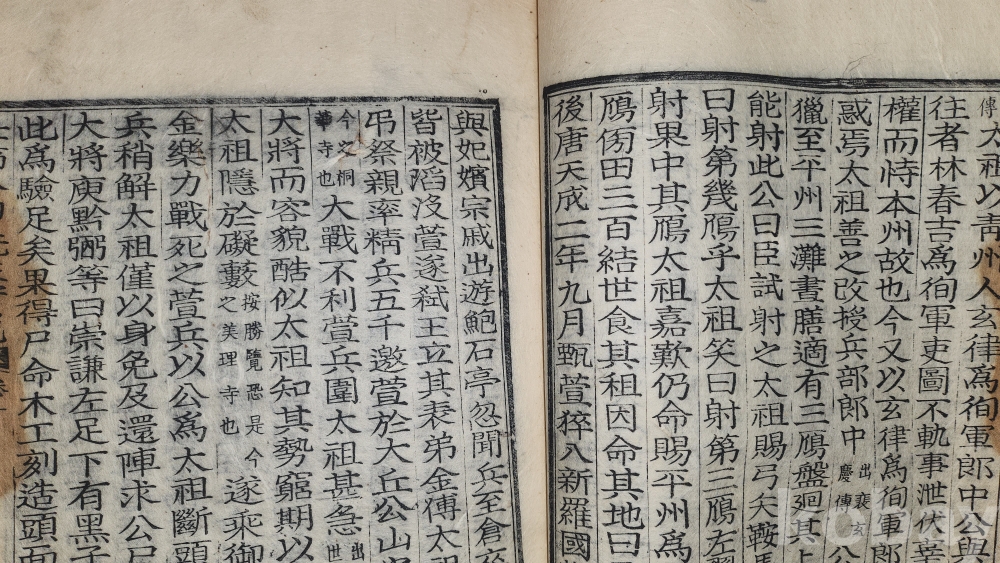 傳太祖以靑州人玄律爲徇軍郎中公與
往者林春吉爲徇軍吏圖不軌事泄伏辜
權而恃本州故也今又以玄律爲徇軍郎
惑焉太祖善之改授兵部郎中出裴玄慶傳公
獵至平州三灘晝膳適有三鴈盤廻其上
能射此公曰臣試射之太祖賜弓矢鞍馬
曰射第幾鴈乎太祖笑曰射第三鴈左
射果中其鴈太祖嘉歎仍命賜平州爲
鴈傍田三百結世食其租因命其地曰
後唐天成二年九月甄萱猝入新羅國
與妃嬪宗戚出遊鮑石亭忽聞兵至倉卒
皆被滔沒萱遂弑王立其表弟金傅太祖
弔祭親率精兵五千邀萱於大丘公山
今之桐華寺也大戰不利萱兵圍太祖甚急
大將而容貌酷似太祖知其勢窮期以
太祖隱於礙藪按勝覽恐是今之美理寺也遂乘御
金樂力戰死之萱兵以公爲太祖斷頭
兵稍解太祖僅以身免及還陣求公尸
大將庾黔弼等曰崇謙左足下有黑子
此爲驗足矣果得尸命木工刻造頭面